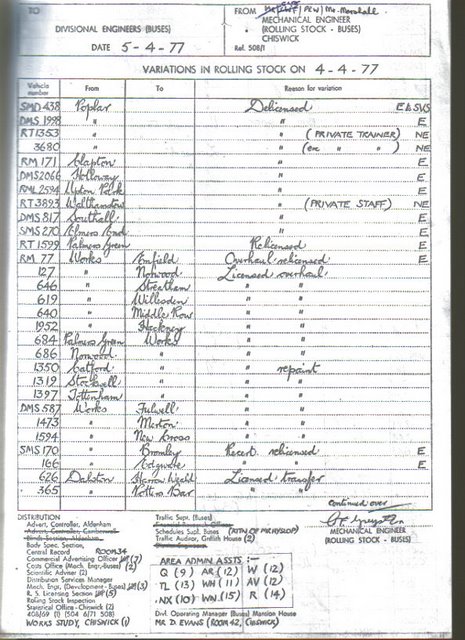 TO
FROM
DIVISIONAL ENGINEERS (BUSES)
DATE 5-4-77
MECHANICAL ENGINEER
(ROLLING STOCK - BUSES)
CHISWICK
Ref. 508/1
VARIATIONS IN ROLLING STOCK ON 4-4-77
Vehicle number From To Reason for variation
SMD 438 Poplar Delicensed E & SVS
DMS 1998 " " E
RT 1353 " " (PRIVATE TRAINER) NE
3680 " " (ex " " ) NE
RM 171 Clapton " E
DMS 2066 Holloway " E
RML 2594 Upton Park " E
RT 3893 Walthamstow " (PRIVATE STAFF) NE
DMS 817 Southall " E
SMS 270 Elmers End " E
RT 1599 Palmers Green Relicensed E
RM 77 Works Enfield Overhaul relicensed E
127 " Norwood Licensed overhaul
646 " Streatham " "
619 " Willesden " "
640 " Middle Row " "
1952 " Hackney " "
684 Palmers Green Works " "
686 Norwood " " "
1350 Catford " " repaint
1319 Stockwell " " "
1397 Tottenham " " "
DMS 587 Works Fulwell " "
1473 " Merton " "
1594 " New Cross " "
SMS 170 " Bromley Recert. relicensed E
166 " Edgware " " E
626 Dalston Harrow Weald Licensed transfer
365 " Potters Bar " "
continued over
MECHANICAL ENGINEER
(ROLLING STOCK - BUSES)
DISTRIBUTION
Advert. Controller, Aldenham
Body Spec. Section,
Central Record ROOM 34
Commercial Advertising Officer (7)
Costs Office (Mech. Engr.-Buses) (2)
Scientific Adviser (2)
Distribution Services Manager
Mech. Engr. (Development - Buses) (3)
R. S. Licensing Section (5)
Rolling Stock Inspection
Statistical Office - Chiswick (2)
406/69 (1) (504 6/71 508)
WORKS STUDY, CHISWICK (1)
Traffic Supt. (Buses)
Schedules Supt. Buses (ATTN OF MR HYSLOP)
Traffic Audit, Griffith House (2)
AREA ADMIN ASSTS :-
Q (9) AR (12) W (12)
TL (13) WH (11) AV (12)
NX (10) WN (15) R (14)
Divl. Operating Manager (Buses) Mansion House
MR D. EVANS (ROOM 42, CHISWICK)